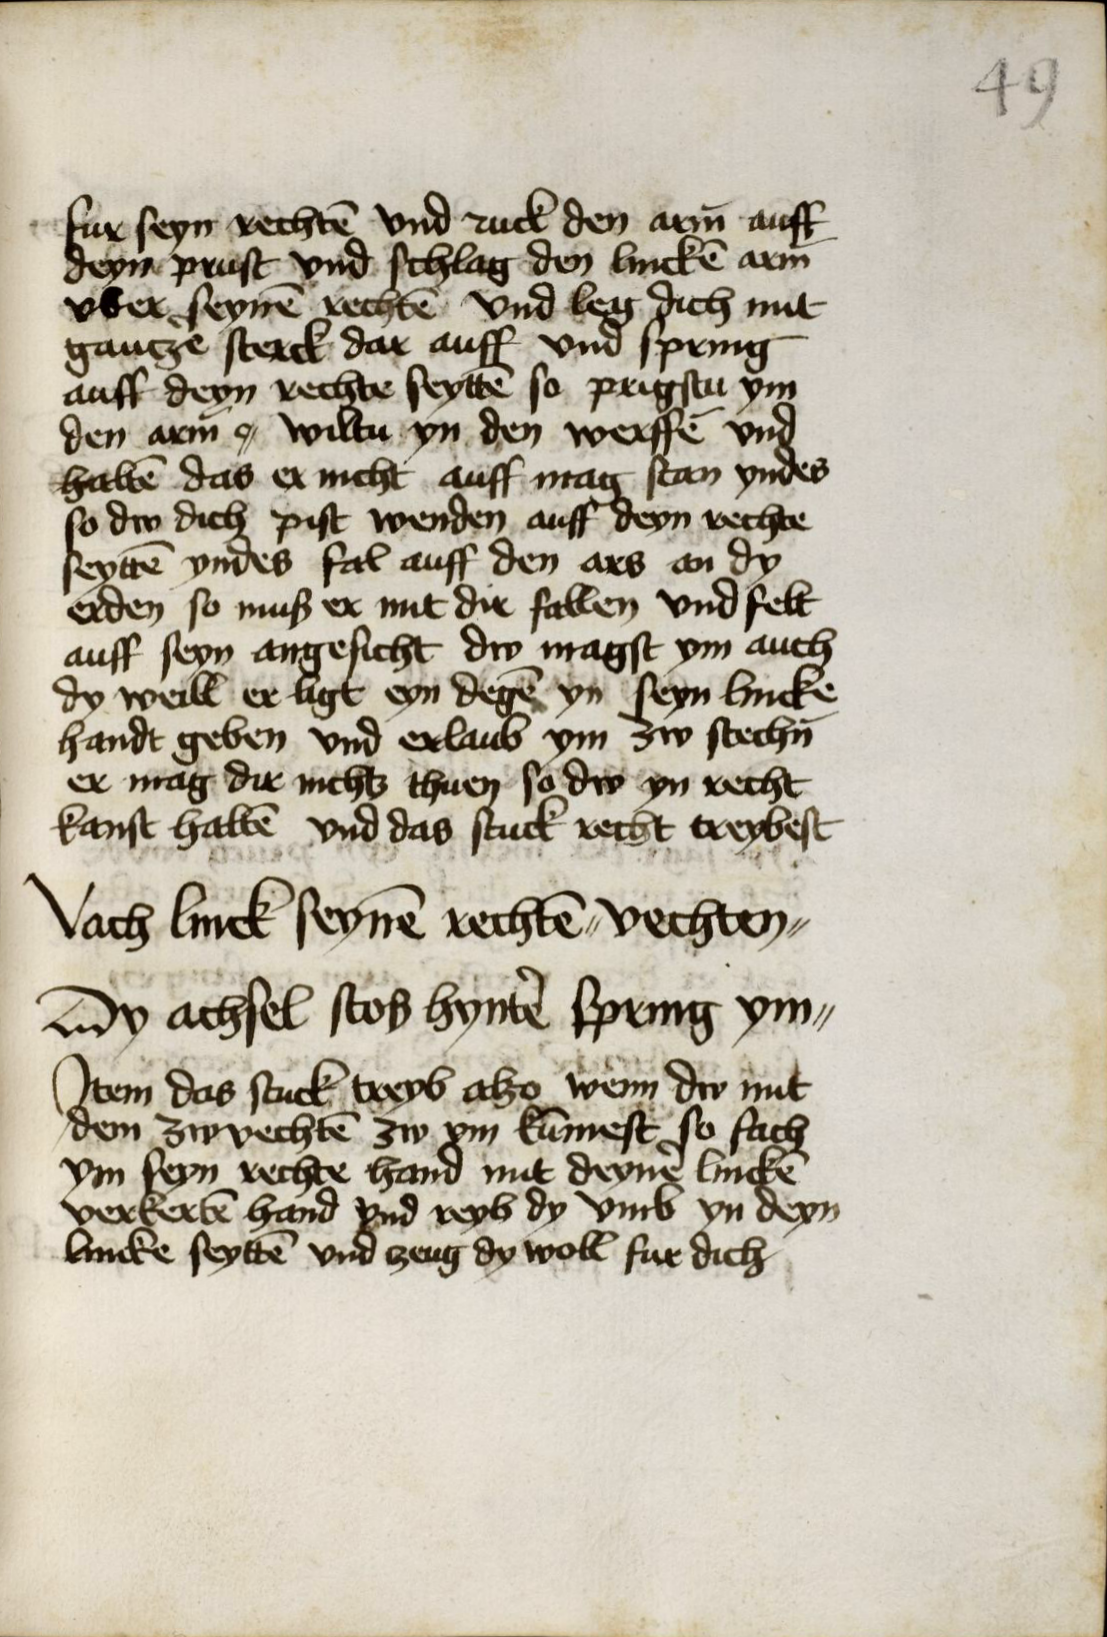 49
fur seyn rechtē vnd ruck den arm̄ auff
deyn prust vnd schlag den linckē arm̄
vber seynē rechtē vnd leg dich mit
gantze sterck dar auff vnd spring
auff deyn rechte seyttē so prigstu ym
den arm̄ wiltu yn den werffē vnd
haltē das er nicht auff mag stan yndes
so dw dich pist wenden auff deyn rechte
seyttē yndes fal auff den ars an dy
erden so muß er mit dir fallen vnd felt
auff seyn angesicht dw magst ym auch
dy weill er ligt eyn degē yn seyn lincke
handt geben vnd erlaub ym zw stechn̄
er mag dir nichtz thuen so dw yn recht
kanst haltē vnd das stuck recht treybest
Vach linck seynē rechtē〃vechten〃
Dy achsel stos hynt̄e spring ym〃
Item das stuck treyb also wenn dw mit
dem zwvechtē zw ym kūmest so fach
ym seyn rechte hand mit deynē linckē
verkertē hand vnd reyb dy vmb yn deyn
lincke seyttē vnd zeug dy woll fur dich